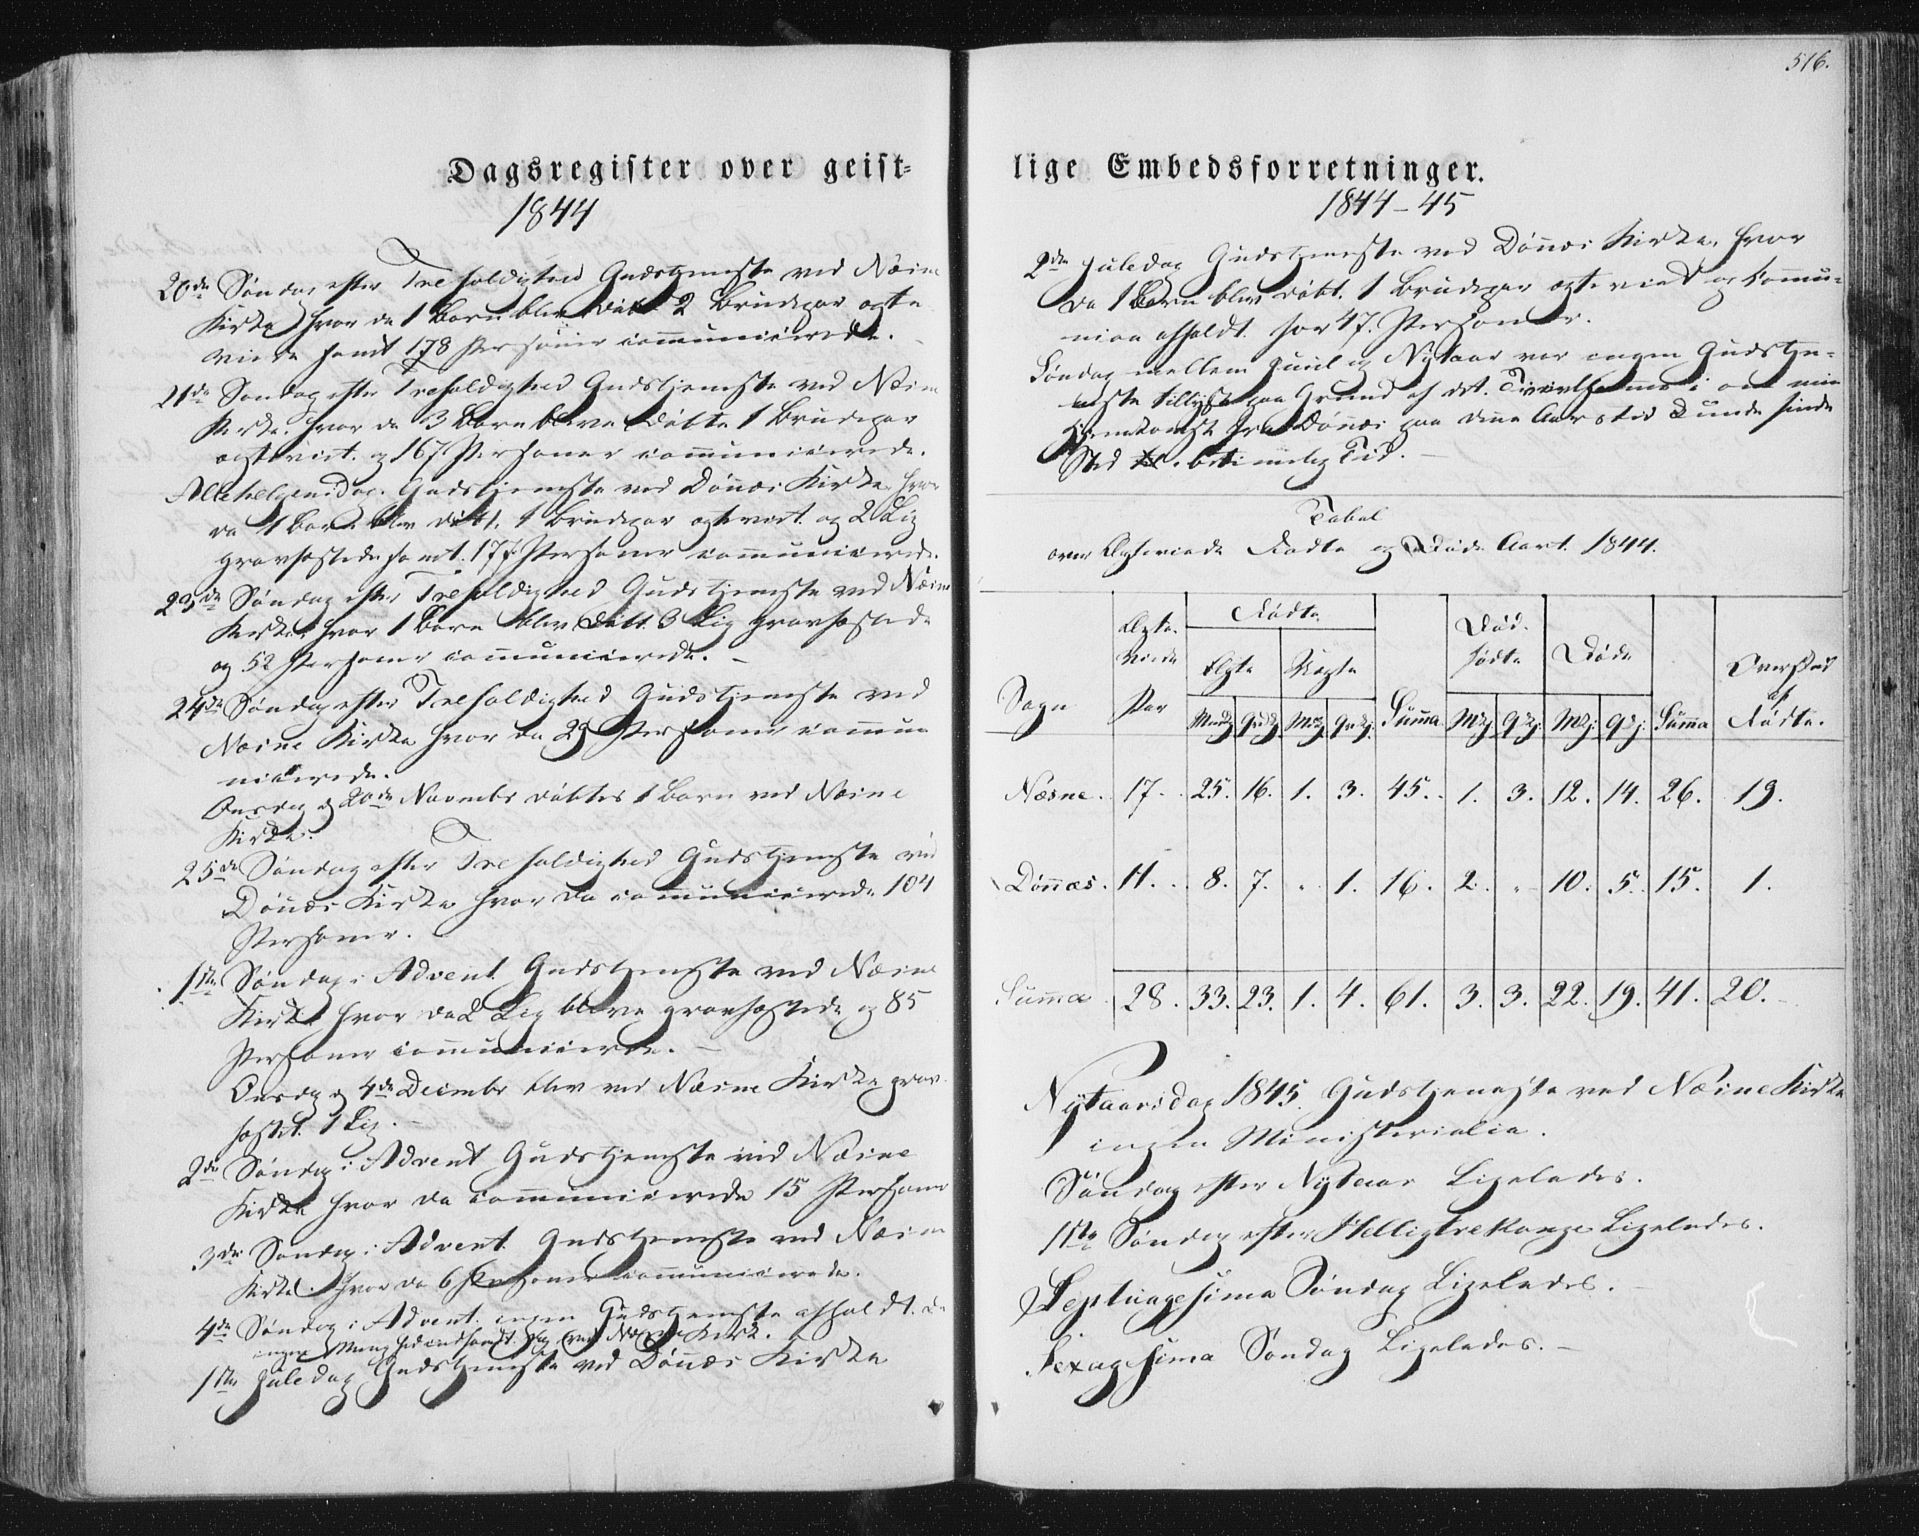 Dagsregister over geist-
1844
20de Søndag efter Trefoldighed Gudstjeneste ved Næsne
Kirke hvor da 1 Barn blev døbt 2 Brudepar ægte-
viede samt 178 Personer communicerede.
21de Søndag efter Trefoldighed Gudstjeneste ved Næsne
Kirke, hvor da 3 Børn bleve døbte 1 Brudepar
ægteviet og 167 Personer communicerede.
Allehelgensdag. Gudstjeneste ved Dönnæs Kirke hvor
da 1 Barn blev døbt, 1 Brudepar ægteviet og 2 Liig
gravfæstede samt Personer communicerede.
23de Søndag efter Trefoldighed Gudstjeneste ved Næsne
Kirke, hvor 1 Barn blev døbt 3 Liig gravfæstede
og 52 Personer communicerede.
24de Søndag efter Trefoldighed Gudstjeneste ved
Næsne Kirke hvor da 29 Personer commu
nicerede.
Onsdag d 20de Novembr døbtes 1 Barn ved Næsne
Kirke.
25de Søndag efter Trefoldighed Gudstjeneste ved
Dönnæs Kirke hvor da communicerede 104
Personer.
1ste Søndag i Advent Gudstjeneste ved Næsne
Kirke hvor da 2 Liig bleve gravfæstede og 85
Personer communicerede.
Onsdag d 4de Decembr blev ved Næsne Kirke grav-
fæstet 1 Liig.
2de Søndag i Advent Gudstjeneste ved Næsne
Kirke hvor da communicerede 15 Personer
3de Søndag i Advent Gudstjeneste ved Næsne
Kirke hvor da 6 Personer communicerede.
4de Søndag i Advent ingen Gudstjeneste afholdt da
ingen Menighed indfandt sig ved Næsne Kirke.
1ste Juledag Gudstjeneste ved Dönnæs Kirke
516.
lige Embedsforretninger.
1844-45
2den Juledag Gudstjeneste ved Dönnæs Kirke, hvor
da 1 Barn blev døbt, 1 Brudepar ægteviet og Commu-
nion afholdt for 47 Personer.
Søndag mellem Juul og Nytaar var ingen Gudstje-
neste tillyst paa Grund af det Tvivlsomme i om min
Hjemkomst fra Dönnæs paa denne Aarstid kunde finde
Sted i betimelig Tid.
Tabel
over Ægteviede Fødte og Døde Aaret 1844.
Ægte- Fødte Død-
viede Ægte Uægte fødte Døde Overskud
Sogn Par Mdkj Qvdkj Mkj Qvkj. Summa Mkj Qkj. Mkj. Qkj. Summa af Fødte.
Næsne. 17. 25. 16. 1. 3. 45. 1. 3. 12. 14. 26. 19.
Dönnæs. 11. 8. 7. " 1. 16. 2. " 10. 5. 15. 1.
Summa 28. 33. 23. 1. 4. 61. 3. 3. 22. 19. 41. 20.
Nytaarsdag 1845. Gudstjeneste ved Næsne Kirke
ingen Ministerialia.
Søndag efter Nytaar Ligeledes.
1ste Søndag efter Helligtrekonge Ligeledes.
Septuagesima Søndag Ligeledes.
Sexagesima Søndag Ligeledes.